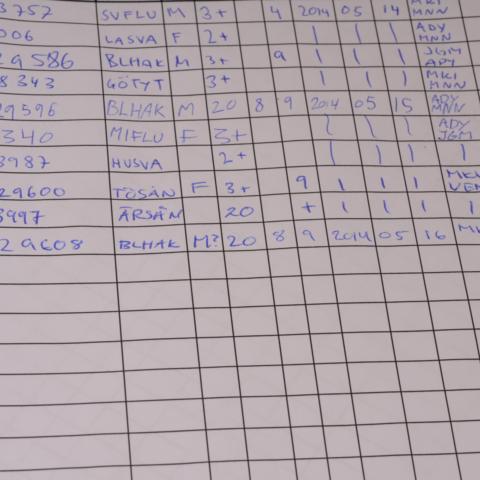 3757 SVFLU M 3+ 4 2014 05 14 MNN
006 LASVA F 2+ | | | ADY MNN
29586 BLHAK M 3+ 9 | | | JGM ADY
8343 GÖTYT 3+ | | | MKI MNN
29596 BLHAK M 20 8 9 2014 05 15 ADY MNN
340 MIFLU F 3+ | | | ADY JGM
3987 HUSVA 2+ | | | |
29600 TOSÄN F 3+ 9 | | |
3997 ÄRSÅN 20 + | | | |
29608 BLHAK M? 20 8 9 2014 05 16